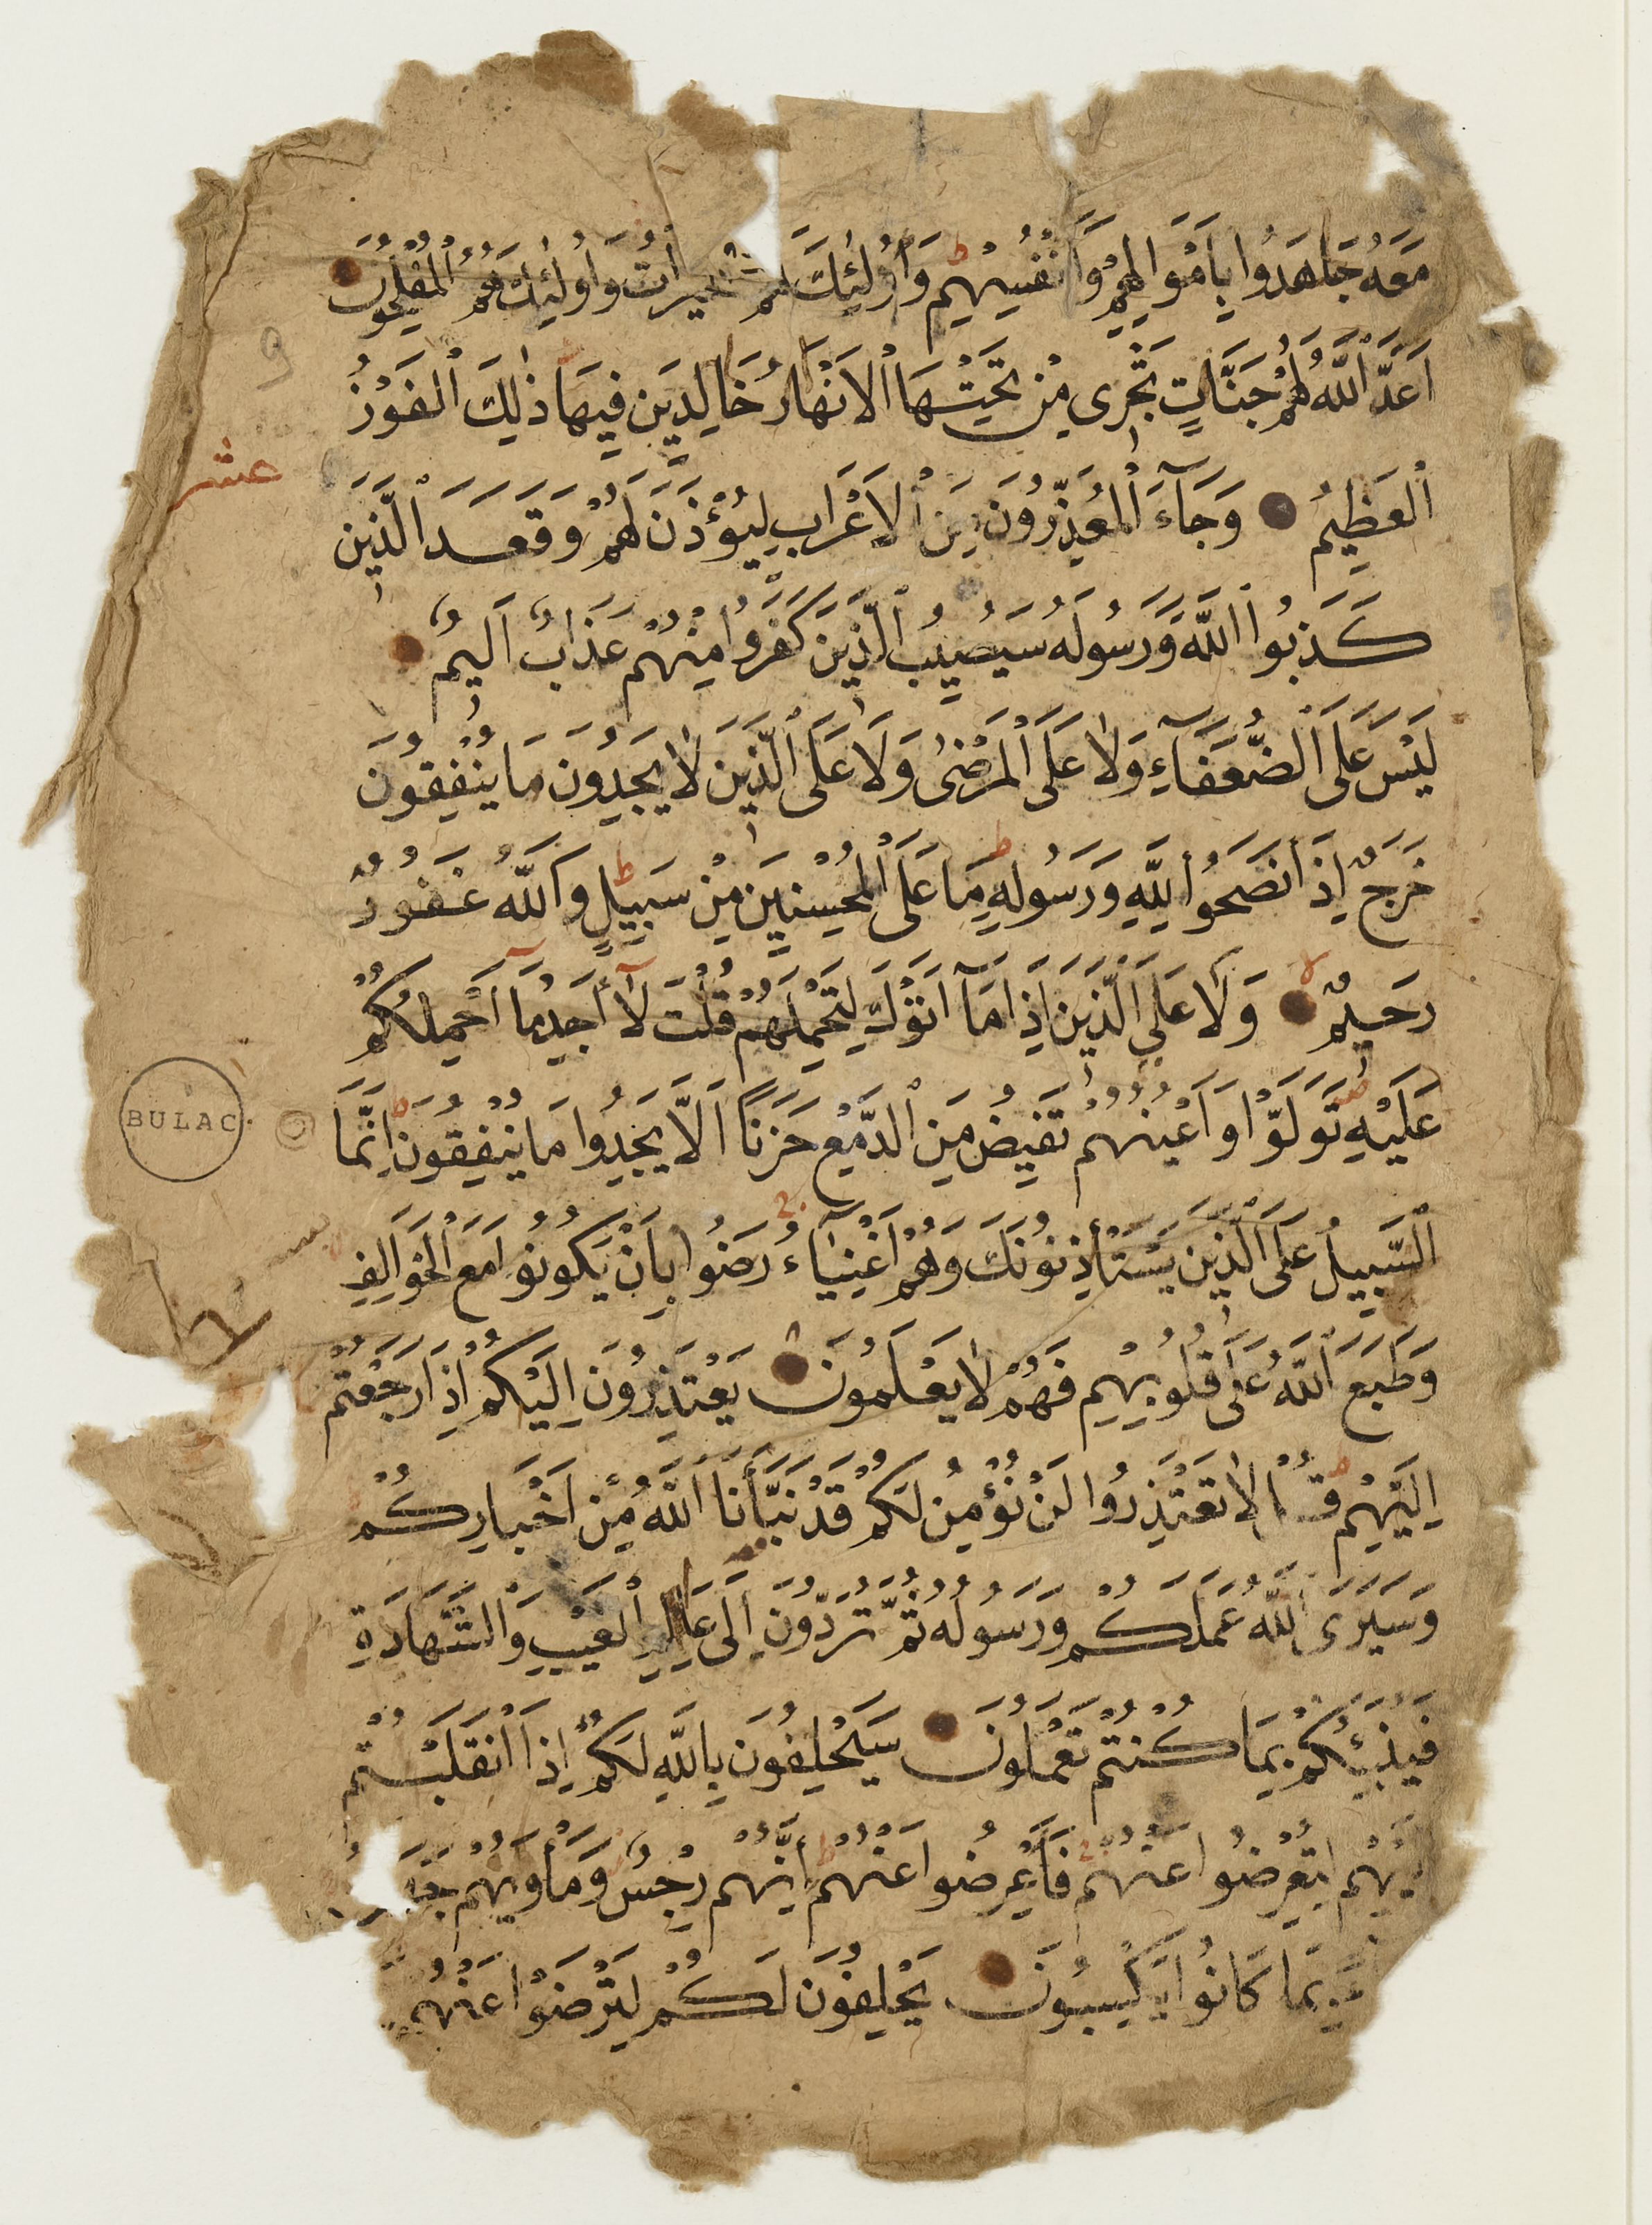 مَعَهُ جَاهَدُوا بِاَمْوَالِهِمْ وَاَنْفُسِهِمْ وَاُولٰئِكَ لَهُمُ الْخَيْرَاتُ وَاُولٰئِكَ هُمُ الْمُفْلِحُونَ
اَعَدَّ اللّٰهُ لَهُمْ جَنَّاتٍ تَجْرِى مِنْ تَحْتِهَا الْاَنْهَارُ خَالِدِينَ فِيهَا ذٰلِكَ الْفَوْزُ
عشر
الْعَظِيمُ وَجَآءَ الْمُعَذِّرُونَ مِنَ الْاَعْرَابِ لِيُؤْذَنَ لَهُمْ وَقَعَدَ الَّذِينَ
كَذَبُوا اللّٰهَ وَرَسُولَهُ سَيُصِيبُ الَّذِينَ كَفَرُوا مِنْهُمْ عَذَابٌ اَلِيمٌ
لَيْسَ عَلَى الضُّعَفَآءِ وَلَا عَلَى الْمَرْضٰى وَلَا عَلَى الَّذِينَ لَا يَجِدُونَ مَا يُنْفِقُونَ
حَرَجٌ اِذَا نَصَحُوا لِلّٰهِ وَرَسُولِهِ مَا عَلَى الْمُحْسِنِينَ مِنْ سَبِيلٍ وَاللّٰهُ غَفُورٌ
رَحِيمٌ وَلَا عَلَى الَّذِينَ اِذَا مَآ اَتَوْكَ لِتَحْمِلَهُمْ قُلْتَ لَآ اَجِدُ مَآ اَحْمِلُكُمْ
عَلَيْهِ تَوَلَّوْا وَاَعْيُنُهُمْ تَفِيضُ مِنَ الدَّمْعِ حَزَنًا اَلَّا يَجِدُوا مَا يُنْفِقُونَ اِنَّمَا
BULAC
السَّبِيلُ عَلَى الَّذِينَ يَسْتَأْذِنُونَكَ وَهُمْ اَغْنِيَآءُ رَضُوا بِاَنْ يَكُونُوا مَعَ الْخَوَالِفِ
وَطَبَعَ اللّٰهُ عَلَى قُلُوبِهِمْ فَهُمْ لَا يَعْلَمُونَ يَعْتَذِرُونَ اِلَيْكُمْ اِذَا رَجَعْتُمْ
اِلَيْهِمْ قُلْ لَا تَعْتَذِرُوا لَنْ نُؤْمِنَ لَكُمْ قَدْ نَبَّأَنَا اللّٰهُ مِنْ اَخْبَارِكُمْ
وَسَيَرَى اللّٰهُ عَمَلَكُمْ وَرَسُولُهُ ثُمَّ تُرَدُّونَ اِلَى عَالِمِ الْغَيْبِ وَالشَّهَادَةِ
فَيُنَبِّئُكُمْ بِمَا كُنْتُمْ تَعْمَلُونَ سَيَحْلِفُونَ بِاللّٰهِ لَكُمْ اِذَا انْقَلَبْتُمْ
لِتُعْرِضُوا عَنْهُمْ فَاَعْرِضُوا عَنْهُمْ اِنَّهُمْ رِجْسٌ وَمَأْوٰيهُمْ
بِمَا كَانُوا يَكْسِبُونَ يَحْلِفُونَ لَكُمْ لِتَرْضَوْا عَنْهُمْ